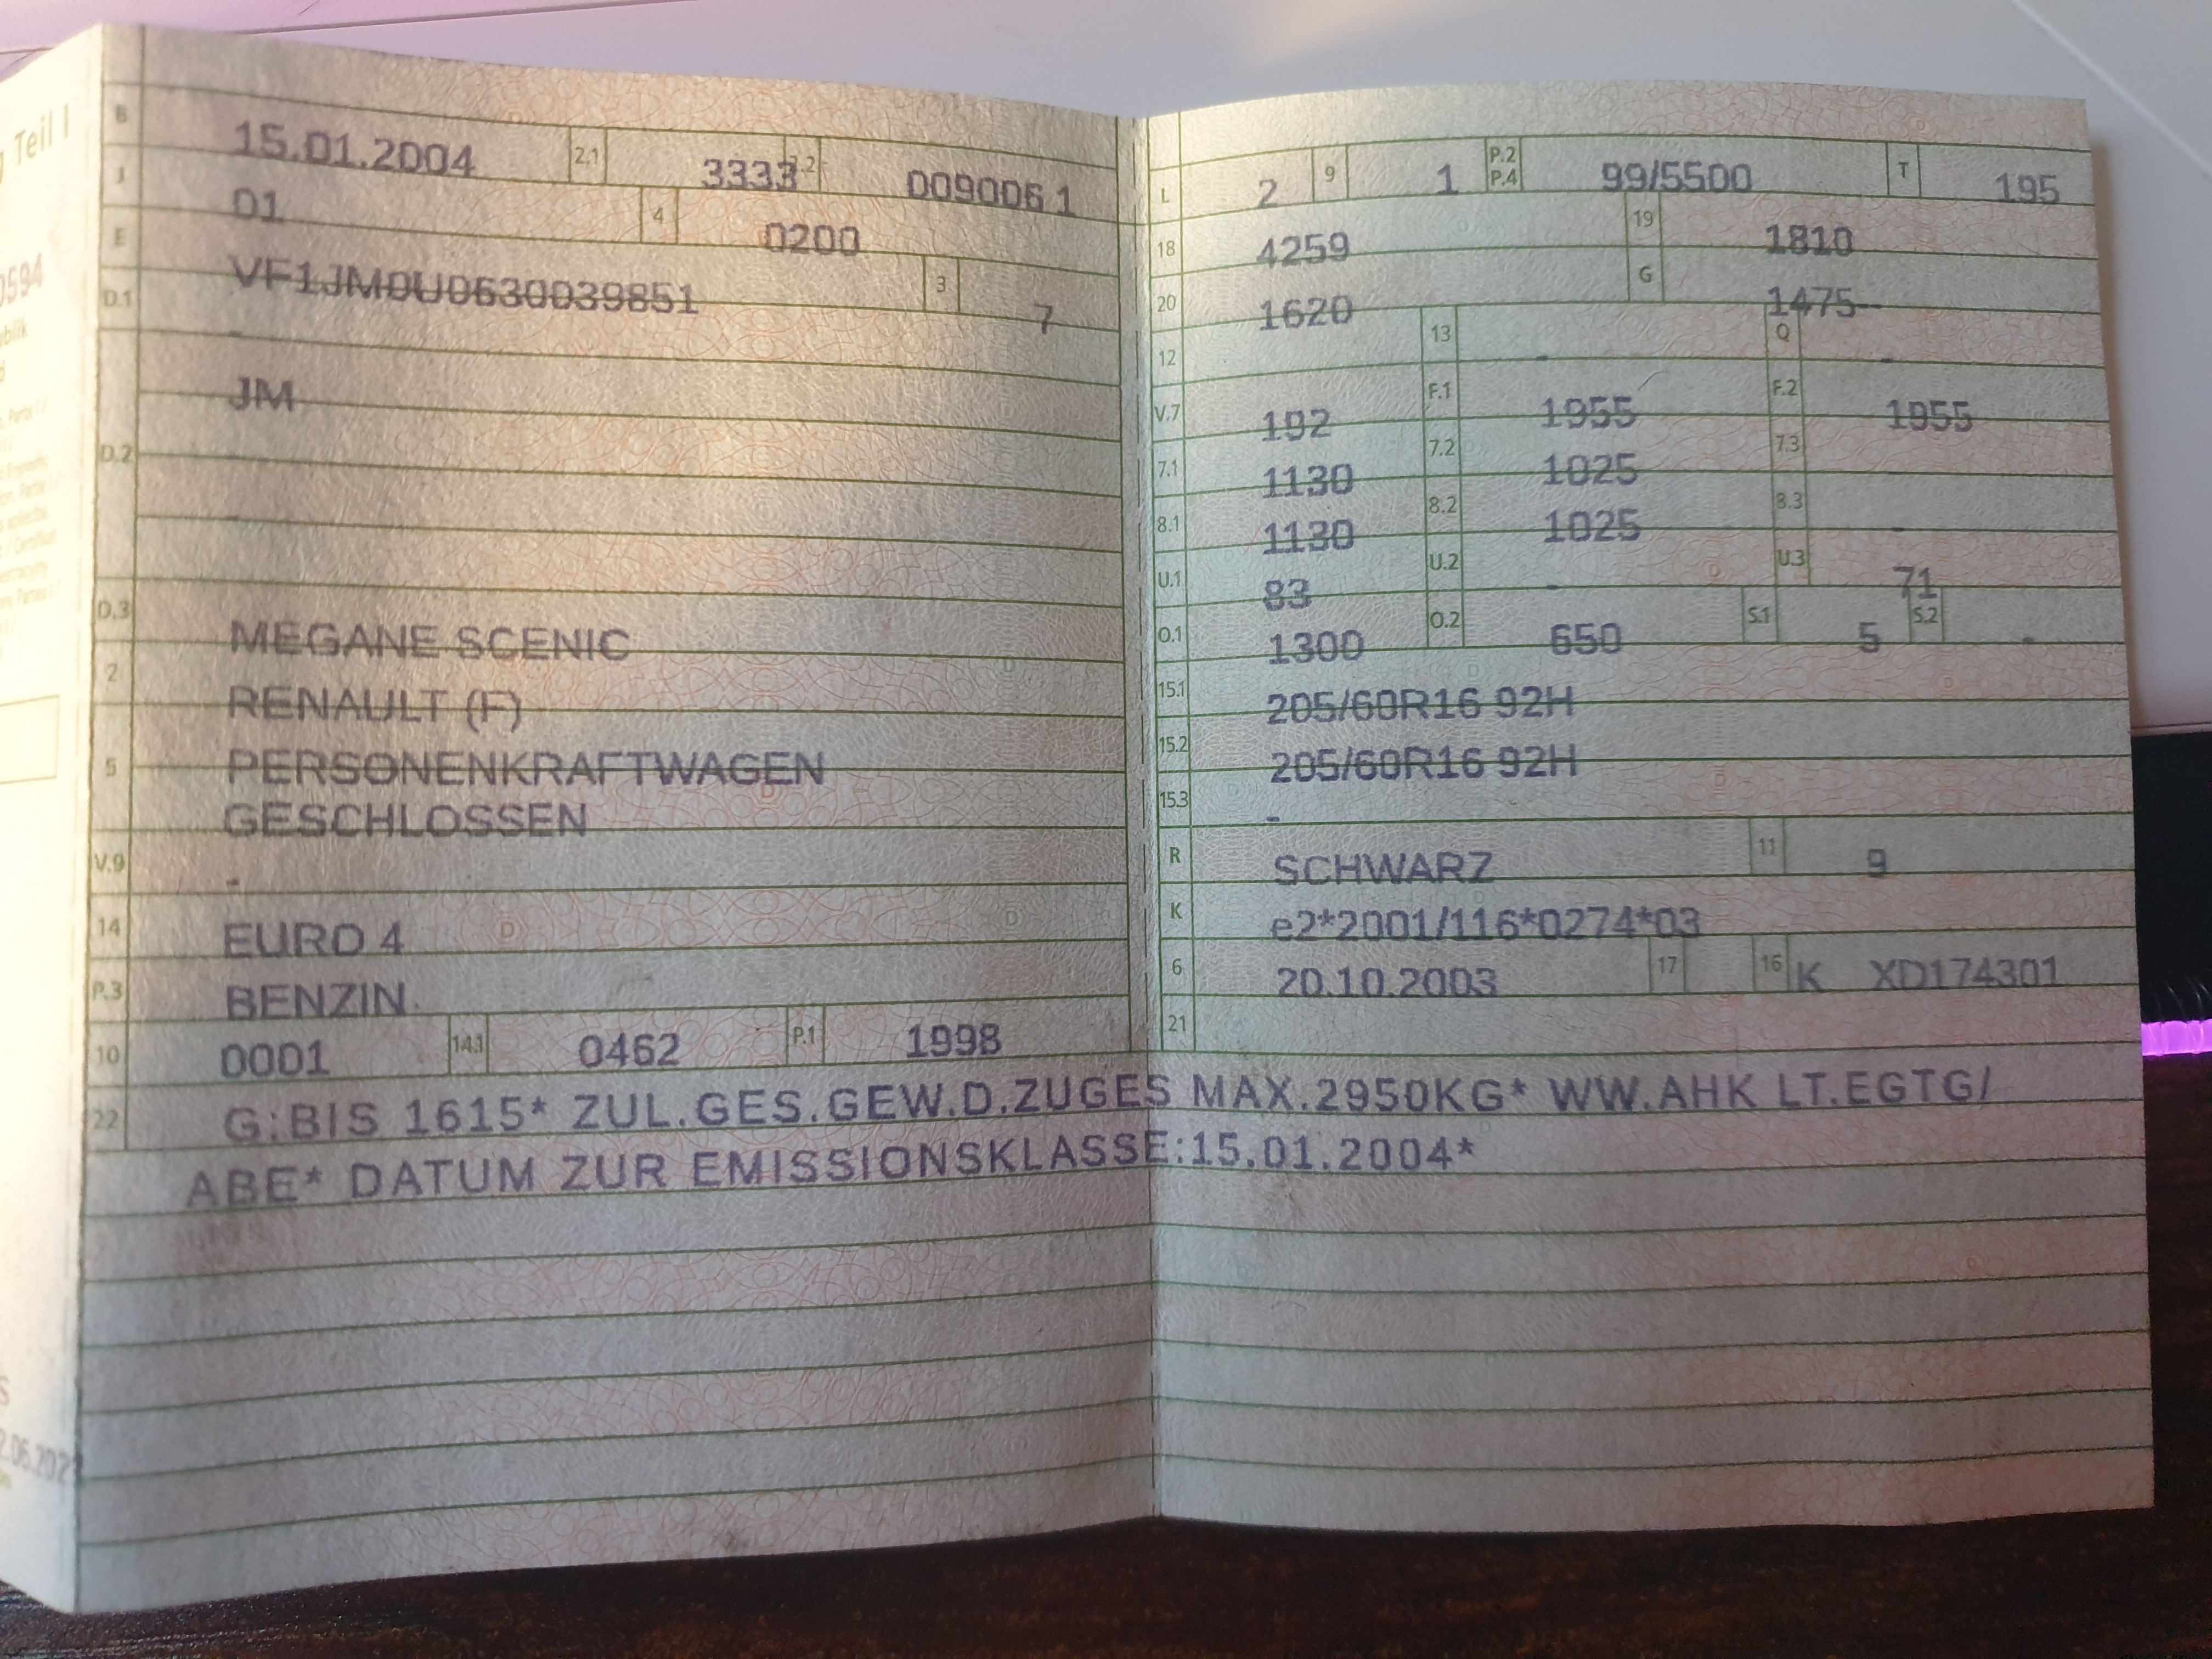 g Teil I
0594
B 15.01.2004 2.1 3333 2.2 0090061
J 01 4 0200
E VF1JM0U0630039851 3 7
D.1 -
D.2 JM
-
D.3 MEGANE SCENIC
2 RENAULT (F)
5 PERSONENKRAFTWAGEN
GESCHLOSSEN
V.9 -
14 EURO 4
P.3 BENZIN
10 0001 14.1 0462 P.1 1998
L 2 9 1 P.2 P.4 99/5500 T 195
18 4259 19 1810
20 1620 G 1475--
12 13 - Q -
V.7 192 F.1 1955 F.2 1955
7.1 1130 7.2 1025 7.3 -
8.1 1130 8.2 1025 8.3 -
U.1 83 U.2 - U.3 71
O.1 1300 O.2 650 S.1 5 S.2 -
15.1 205/60R16 92H
15.2 205/60R16 92H
15.3 -
R SCHWARZ 11 9
K e2*2001/116*0274*03
6 20.10.2003 17 16 K XD174301
21
22 G:BIS 1615* ZUL.GES.GEW.D.ZUGES MAX.2950KG* WW.AHK LT.EGTG/
ABE* DATUM ZUR EMISSIONSKLASSE:15.01.2004*